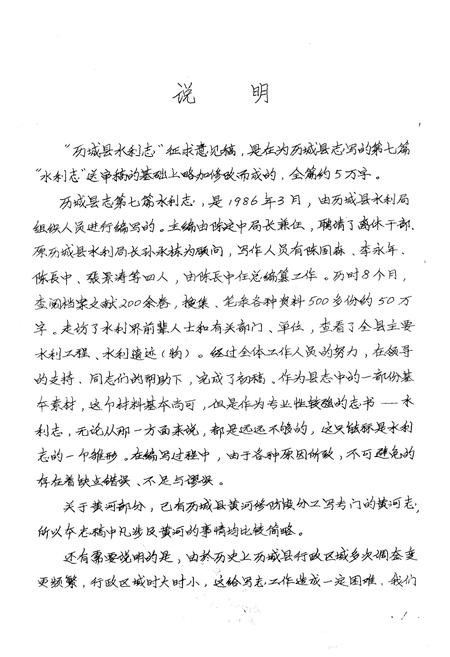 说 明
“历城县水利志”征求意见稿，是在为历城县志写的第七篇
“水利志”送审稿的基础上略加修改而成的，全篇约5万字。
历城县志第七篇水利志，是1986年3月，由历城县水利局
组织人员进行编写的。主编由陈定中局长兼任，聘请了离休干部、
原历城县水利局长孙永栋为顾问，写作人员有陈国森、李永年、
陈长中、张景涛等四人，由陈长中任总编纂工作。历时8个月，
查阅档案文献200余卷，搜集、笔录各种资料500多份约50万
字。走访了水利界前辈人士和有关部门、单位，查看了全县主要
水利工程、水利遗迹（物）。经过全体工作人员的努力，在领导
的支持、同志们的帮助下，完成了初稿。作为县志中的一部份基
本素材，这个材料基本尚可，但是作为专业性较强的志书——水
利志，无论从那一方面来说，都是远远不够的，这只能称是水利
志的一个雏形。在编写过程中，由于各种原因所致，不可避免的
存在着缺点错误、不足与谬误。
关于黄河部分，已有历城县黄河修防段分工写专门的黄河志，
所以本志稿中凡涉及黄河的事情均比较简略。
还有需要说明的是，由於历史上历城县行政区域多次调态变
更频繁，行政区域时大时小，这给写志工作造成一定困难，我们
1